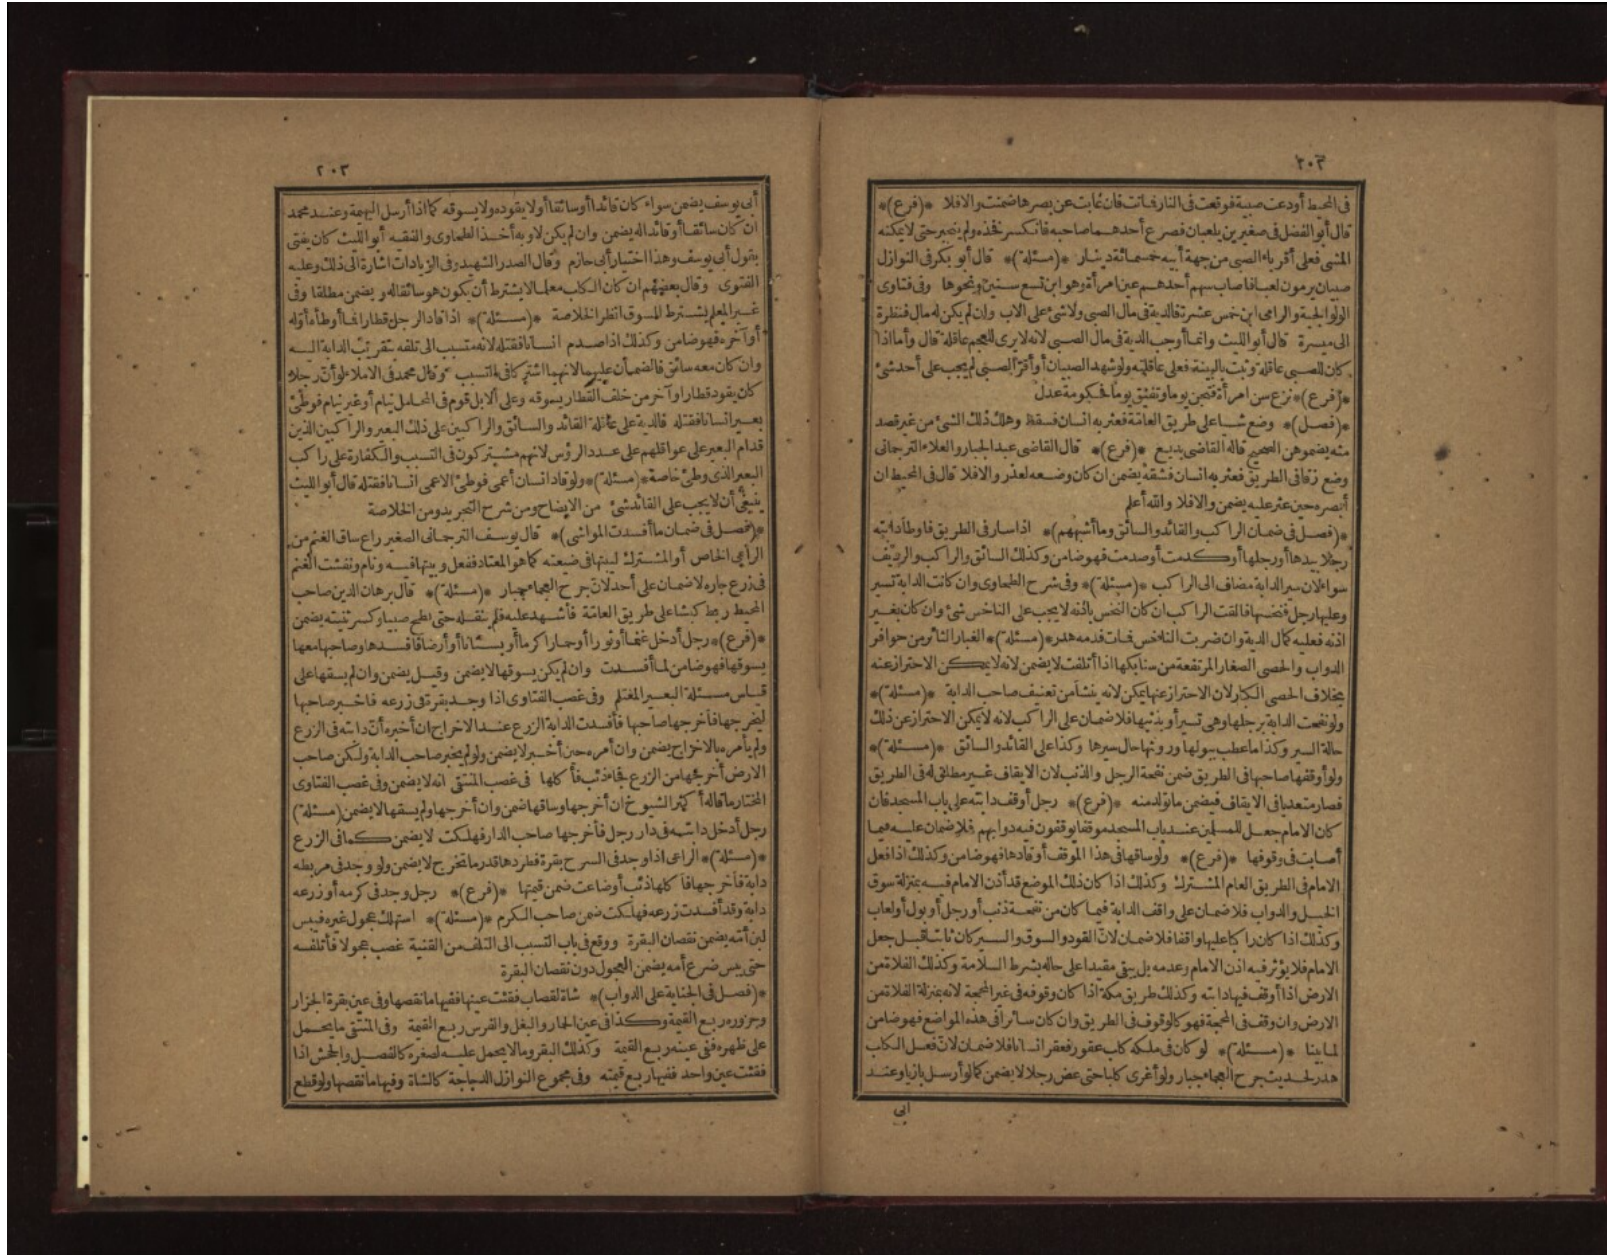 ٢٠٢
في المحيط أودعت صبية فوقعت في النار فماتت فان غابت عن بصرها ضمنت والا فلا *(فرع)*
قال أبو الفضل في صغيرين يلعبان فصرع أحدهما صاحبه فانكسر فخذه ولم ينجبر حتى لا يمكنه
المشي فعلى أقرباء الصبي من جهة أبيه خمسمائة دينار *(مسئلة)* قال أبو بكر في النوازل
صبيان يرمون لعبا فأصاب سهم أحدهم عين امرأة وهو ابن تسع سنين ونحوها وفي فتاوى
الولوالجية والرامي ابن خمس عشرة فالدية في مال الصبي ولا شئ على الاب وان لم يكن له مال فنظرة
الى ميسرة قال أبو الليث وانما أوجب الدية في مال الصبي لانه لا يرى للعجم عاقلة قال وأما اذا
كان للصبي عاقلة وثبت بالبينة فعلى عاقلته ولو شهد الصبيان أو أقر الصبي لم يجب على أحد شئ
*(فرع)* نزع سن امرأة فتجن يوما وتفيق يوما فحكومة عدل
*(فصل)* وضع شيأ على طريق العامة فعثر به انسان فسقط وهلك ذلك الشئ من غير قصد
منه يضمن هو الصحيح قاله القاضي بديع *(فرع)* قال القاضي عبد الجبار والعلاء الترجماني
وضع زقا في الطريق فعثر به انسان فشقه يضمن ان كان وضعه لعذر والا فلا قال في المحيط ان
أبصره حين عثر عليه يضمن والا فلا والله أعلم
*(فصل في ضمان الراكب والقائد والسائق وما أشبههم)* اذا سار في الطريق فأوطأ دابته
رجلا بيدها أو رجلها أو كدمت أو صدمت فهو ضامن وكذلك السائق والراكب والرديف
سواء لان سير الدابة مضاف الى الراكب *(مسئلة)* وفي شرح الطحاوي وان كانت الدابة تسير
وعليها رجل فنخسها فألقت الراكب ان كان النخس باذنه لا يجب على الناخس شئ وان كان بغير
اذنه فعليه كمال الدية وان ضربت الناخس فمات فدمه هدر *(مسئلة)* الغبار الثائر من حوافر
الدواب والحصى الصغار المرتفعة من سنابكها اذا أتلفت لا يضمن لانه لا يمكن الاحتراز عنه
بخلاف الحصى الكبار لان الاحتراز عنها يمكن لانه ينشأ من تعنيف صاحب الدابة *(مسئلة)*
ولو نفحت الدابة برجلها وهي تسير أو بذنبها فلا ضمان على الراكب لانه لا يمكن الاحتراز عن ذلك
حالة السير وكذا ما عطب ببولها وروثها حال سيرها وكذا على القائد والسائق *(مسئلة)*
ولو أوقفها صاحبها في الطريق ضمن نفحة الرجل والذنب لان الايقاف غير مطلق له في الطريق
فصار متعديا في الايقاف فيضمن ما تولد منه *(فرع)* رجل أوقف دابته على باب المسجد فان
كان الامام جعل للمسلمين عند باب المسجد موقفا يوقفون فيه دوابهم فلا ضمان عليه فيما
أصابت في وقوفها *(فرع)* ولو ساقها في هذا الموقف أو قادها فهو ضامن وكذلك اذا فعل
الامام في الطريق العام المشترك وكذلك اذا كان ذلك الموضع قد أذن الامام فيه بمنزلة سوق
الخيل والدواب فلا ضمان على واقف الدابة فيما كان من نفحة ذنب أو رجل أو بول أو لعاب
وكذلك اذا كان راكبا عليها واقفا فلا ضمان لان القود والسوق والسير كان ثابتا قبل جعل
الامام فلا يؤثر فيه اذن الامام وعدمه بل يبقى مقيدا على حاله بشرط السلامة وكذلك الفلاة من
الارض اذا أوقف فيها دابته وكذلك طريق مكة اذا كان وقوفه في غير المحجة لانه بمنزلة الفلاة من
الارض وان وقف في المحجة فهو كالوقوف في الطريق وان كان سائرا في هذه المواضع فهو ضامن
لما بينا *(مسئلة)* لو كان في ملكه كلب عقور فعقر انسانا فلا ضمان لان فعل الكلب
هدر لحديث جرح العجماء جبار ولو أغرى كلبا حتى عض رجلا لا يضمن كما لو أرسل بازيا وعند
أبي
٢٠٣
أبي يوسف يضمن سواء كان قائدا أو سائقا أو لا يقوده ولا يسوقه كما اذا أرسل البهيمة وعند محمد
ان كان سائقا أو قائدا له يضمن وان لم يكن لا وبه أخذ الطحاوي والفقيه أبو الليث كان يفتي
بقول أبي يوسف وهذا اختيار أبي حازم وقال الصدر الشهيد وفي الزيادات اشارة الى ذلك وعليه
الفتوى وقال بعضهم ان كان الكلب معلما لا يشترط أن يكون هو سائقا له ويضمن مطلقا وفي
غير المعلم يشترط السوق انظر الخلاصة *(مسئلة)* اذا قاد الرجل قطارا فما أوطأ أوله
أو آخره فهو ضامن وكذلك اذا صدم انسانا فقتله لانه متسبب الى تلفه بتقريب الدابة اليه
وان كان معه سائق فالضمان عليهما لانهما اشتركا في التسبب وقال محمد في الاملاء لو أن رجلا
كان يقود قطارا وآخر من خلف القطار يسوقه وعلى الابل قوم في المحامل نيام أو غير نيام فوطئ
بعير انسانا فقتله فالدية على عاقلة القائد والسائق والراكبين على ذلك البعير والراكبين الذين
قدام البعير على عواقلهم على عدد الرؤس لانهم مشتركون في التسبب والكفارة على راكب
البعير الذي وطئ خاصة *(مسئلة)* ولو قاد انسان أعمى فوطئ الاعمى انسانا فقتله قال أبو الليث
ينبغي أن لا يجب على القائد شئ من الايضاح ومن شرح التجريد ومن الخلاصة
*(فصل في ضمان ما أفسدت المواشي)* قال يوسف الترجماني الصغير راع ساق الغنم من
الراعي الخاص أو المشترك ليبيتها في ضيعته كما هو المعتاد ففعل وبيتها فيه ونام ونفشت الغنم
في زرع جاره لا ضمان على أحد لان جرح العجماء جبار *(مسئلة)* قال برهان الدين صاحب
المحيط ربط كبشا على طريق العامة فأشهد عليه فلم ينقله حتى نطح صبيا وكسر ثنيته يضمن
*(فرع)* رجل أدخل غنما أو ثورا أو حمارا كرما أو بستانا أو أرضا فأفسدها وصاحبها معها
يسوقها فهو ضامن لما أفسدت وان لم يكن يسوقها لا يضمن وقيل يضمن وان لم يسقها على
قياس مسئلة البعير المغتلم وفي غصب الفتاوى اذا وجد بقرة في زرعه فأخبر صاحبها
ليخرجها فأخرجها صاحبها فأفسدت الدابة الزرع عند الاخراج ان أخبره أن دابته في الزرع
ولم يأمره بالاخراج يضمن وان أمره حين أخبر لا يضمن ولو لم يخبر صاحب الدابة ولكن صاحب
الارض أخرجها من الزرع فجاء ذئب فأكلها في غصب المنتقى انه لا يضمن وفي غصب الفتاوى
المختار ما قاله أكثر الشيوخ ان أخرجها وساقها ضمن وان أخرجها ولم يسقها لا يضمن (مسئلة)
رجل أدخل دابته في دار رجل فأخرجها صاحب الدار فهلكت لا يضمن كما في الزرع
*(مسئلة)* الراعي اذا وجد في السرح بقرة فطردها قدر ما تخرج لا يضمن ولو وجد في مربطه
دابة فأخرجها فأكلها ذئب أو ضاعت ضمن قيمتها *(فرع)* رجل وجد في كرمه أو زرعه
دابة وقد أفسدت زرعه فهلكت ضمن صاحب الكرم *(مسئلة)* استهلك عجول غيره فيبس
لبن أمه يضمن نقصان البقرة ووقع في باب التسبب الى التلف من القنية غصب عجولا فأتلفه
حتى يبس ضرع أمه يضمن العجول دون نقصان البقرة
*(فصل في الجناية على الدواب)* شاة لقصاب فقئت عينها ففيها ما نقصها وفي عين بقرة الجزار
وجزوره ربع القيمة وكذا في عين الحمار والبغل والفرس ربع القيمة وفي المنتقى ما يحمل
على ظهره ففي عينه ربع القيمة وكذلك البقر وما لا يحمل عليه لصغره كالفصيل والجحش اذا
فقئت عين واحد ففيها ربع قيمته وفي مجموع النوازل الدجاجة كالشاة وفيها ما نقصها ولو قطع